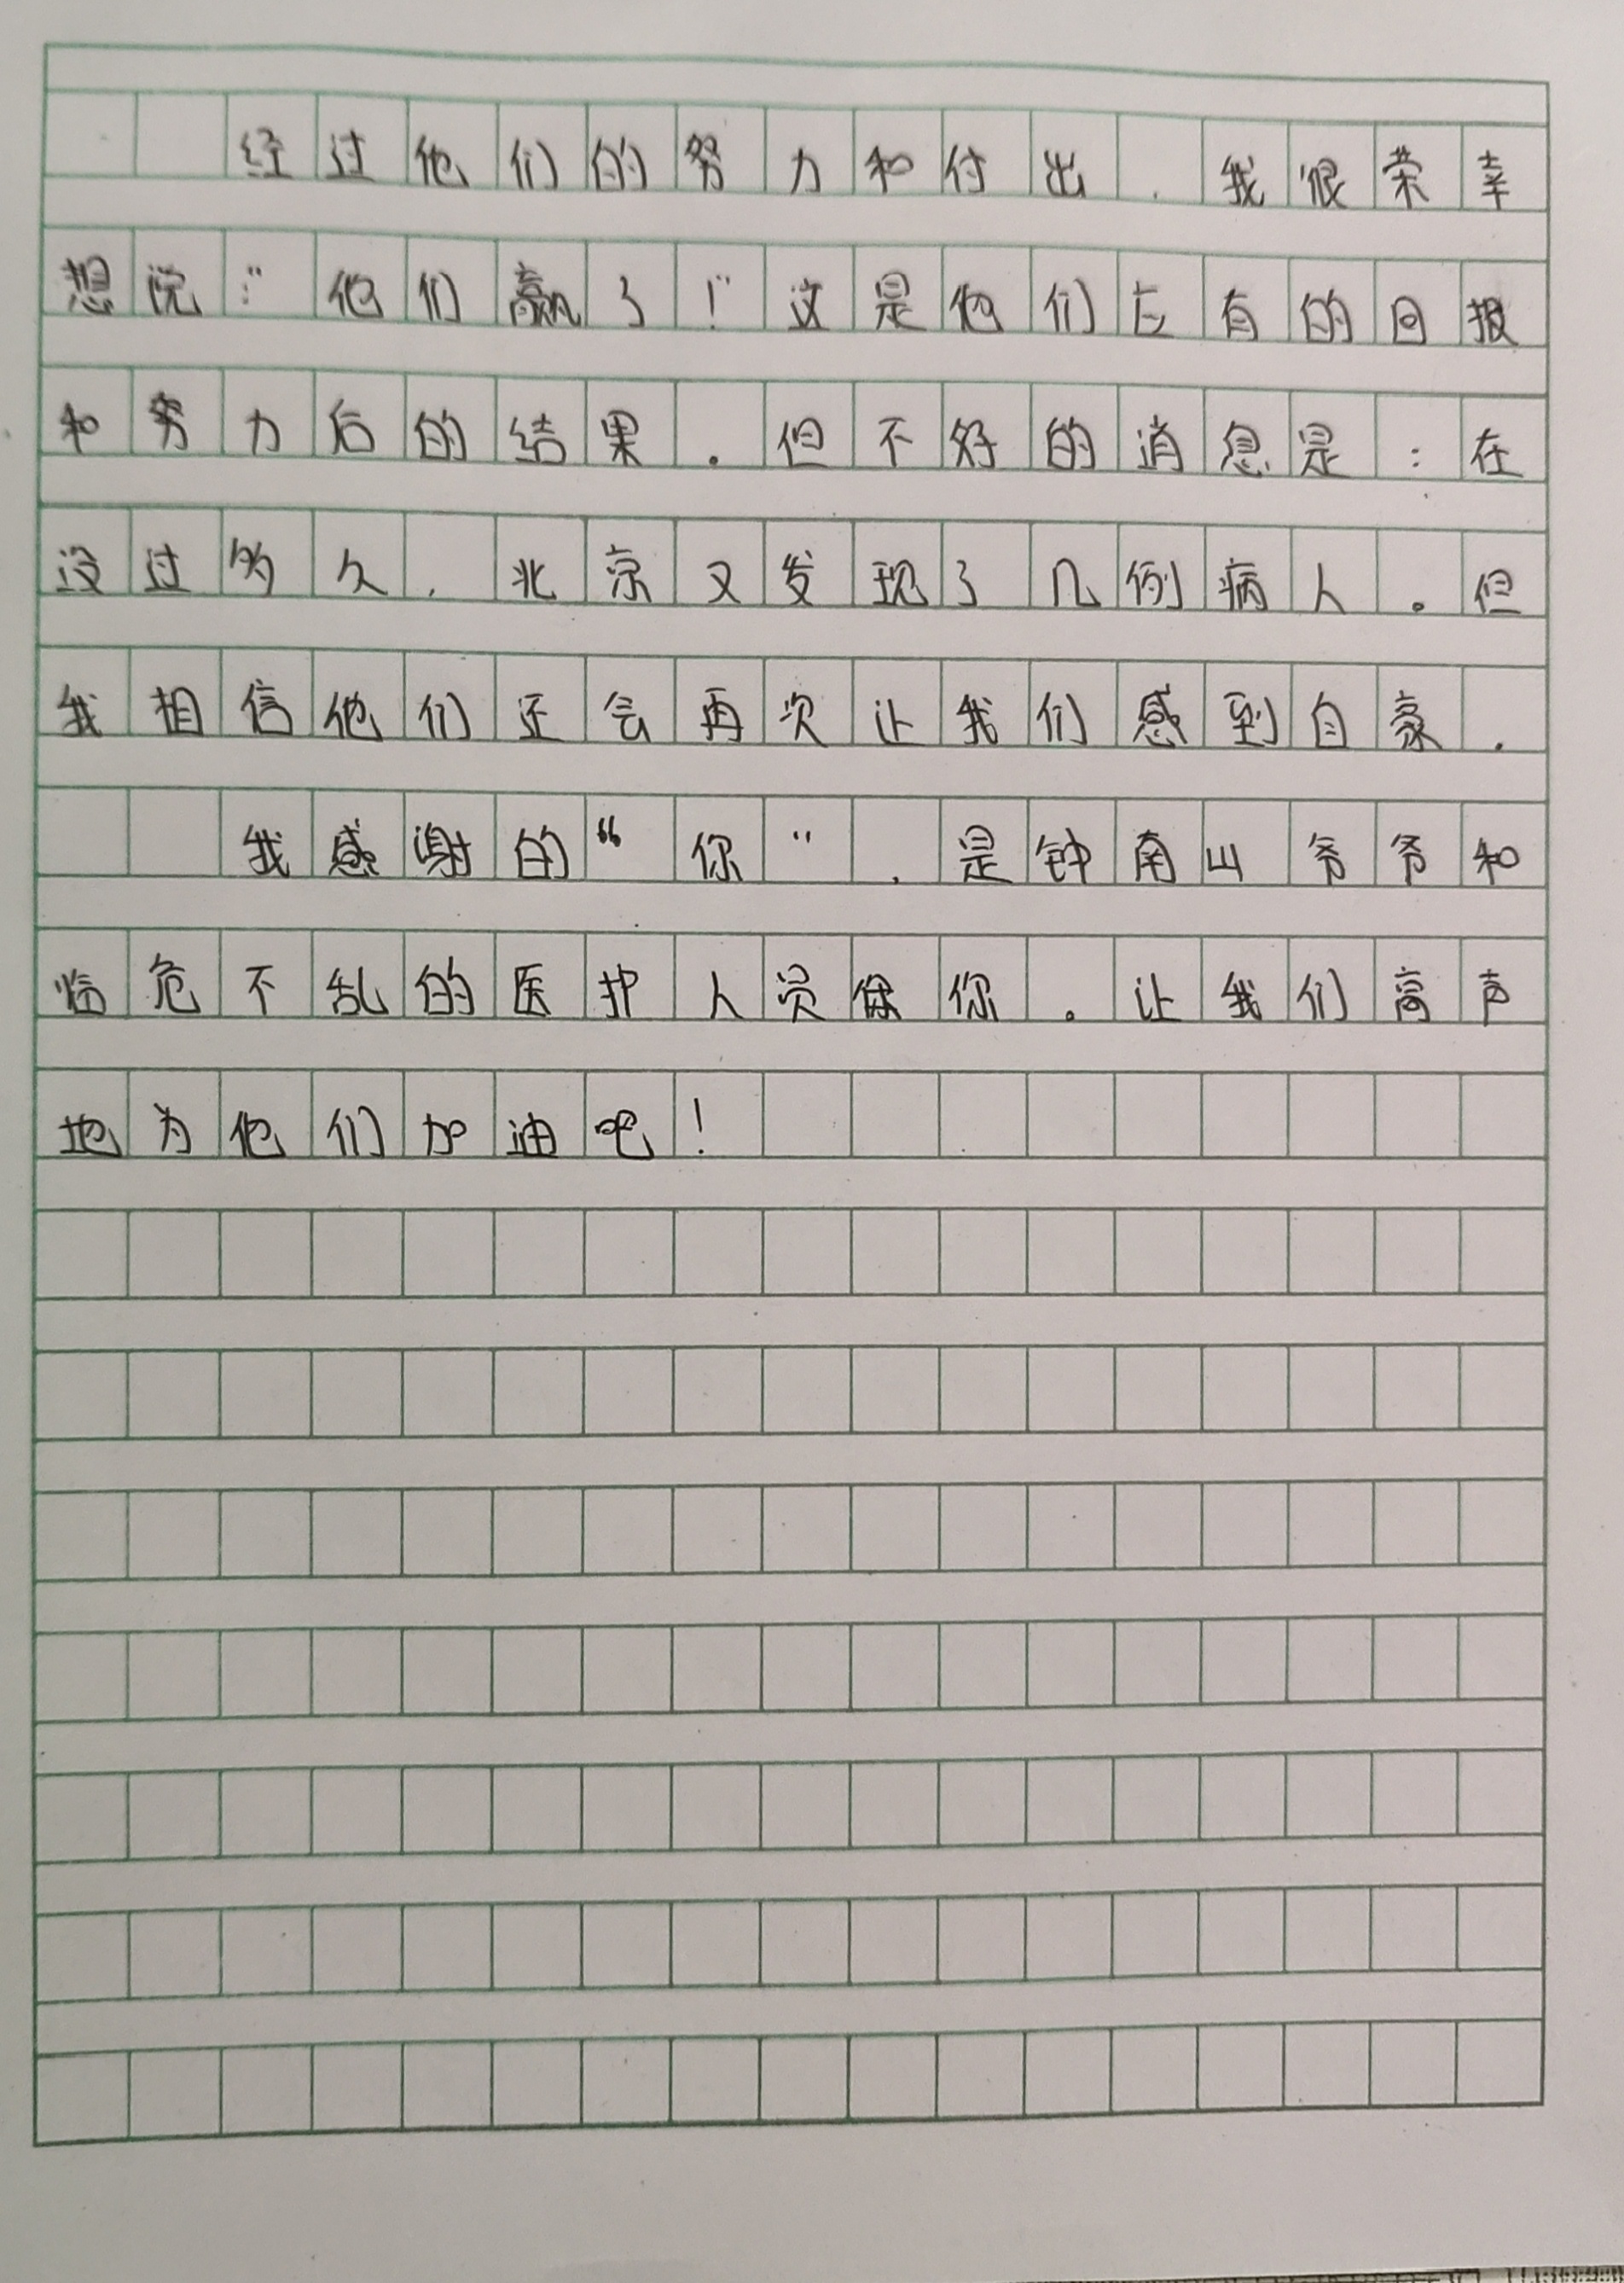 经过他们的努力和付出，我很荣幸
想说：“他们赢了！”这是他们应有的回报
和努力后的结果。但不好的消息是：在
没过多久，北京又发现了几例病人。但
我相信他们还会再次让我们感到自豪。
我感谢的“你”，是钟南山爷爷和
临危不乱的医护人员你。让我们高声
地为他们加油吧！